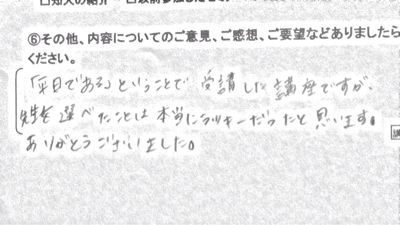 □知人の紹介
⑥その他、内容についてのご意見、ご感想、ご要望などありましたら
ください。
「平日である」ということで、受講した講座ですが、
先生を選べたことは本当にラッキーだったと思います。
ありがとうございました。